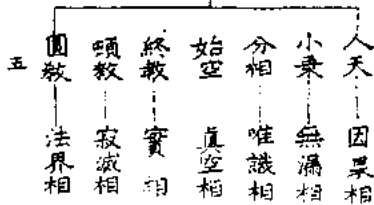 人天—因果相
小乗—無漏相
分相—唯識相
始空 真空相
終教—實相
頓教—寂滅相
圓教—法界相
五